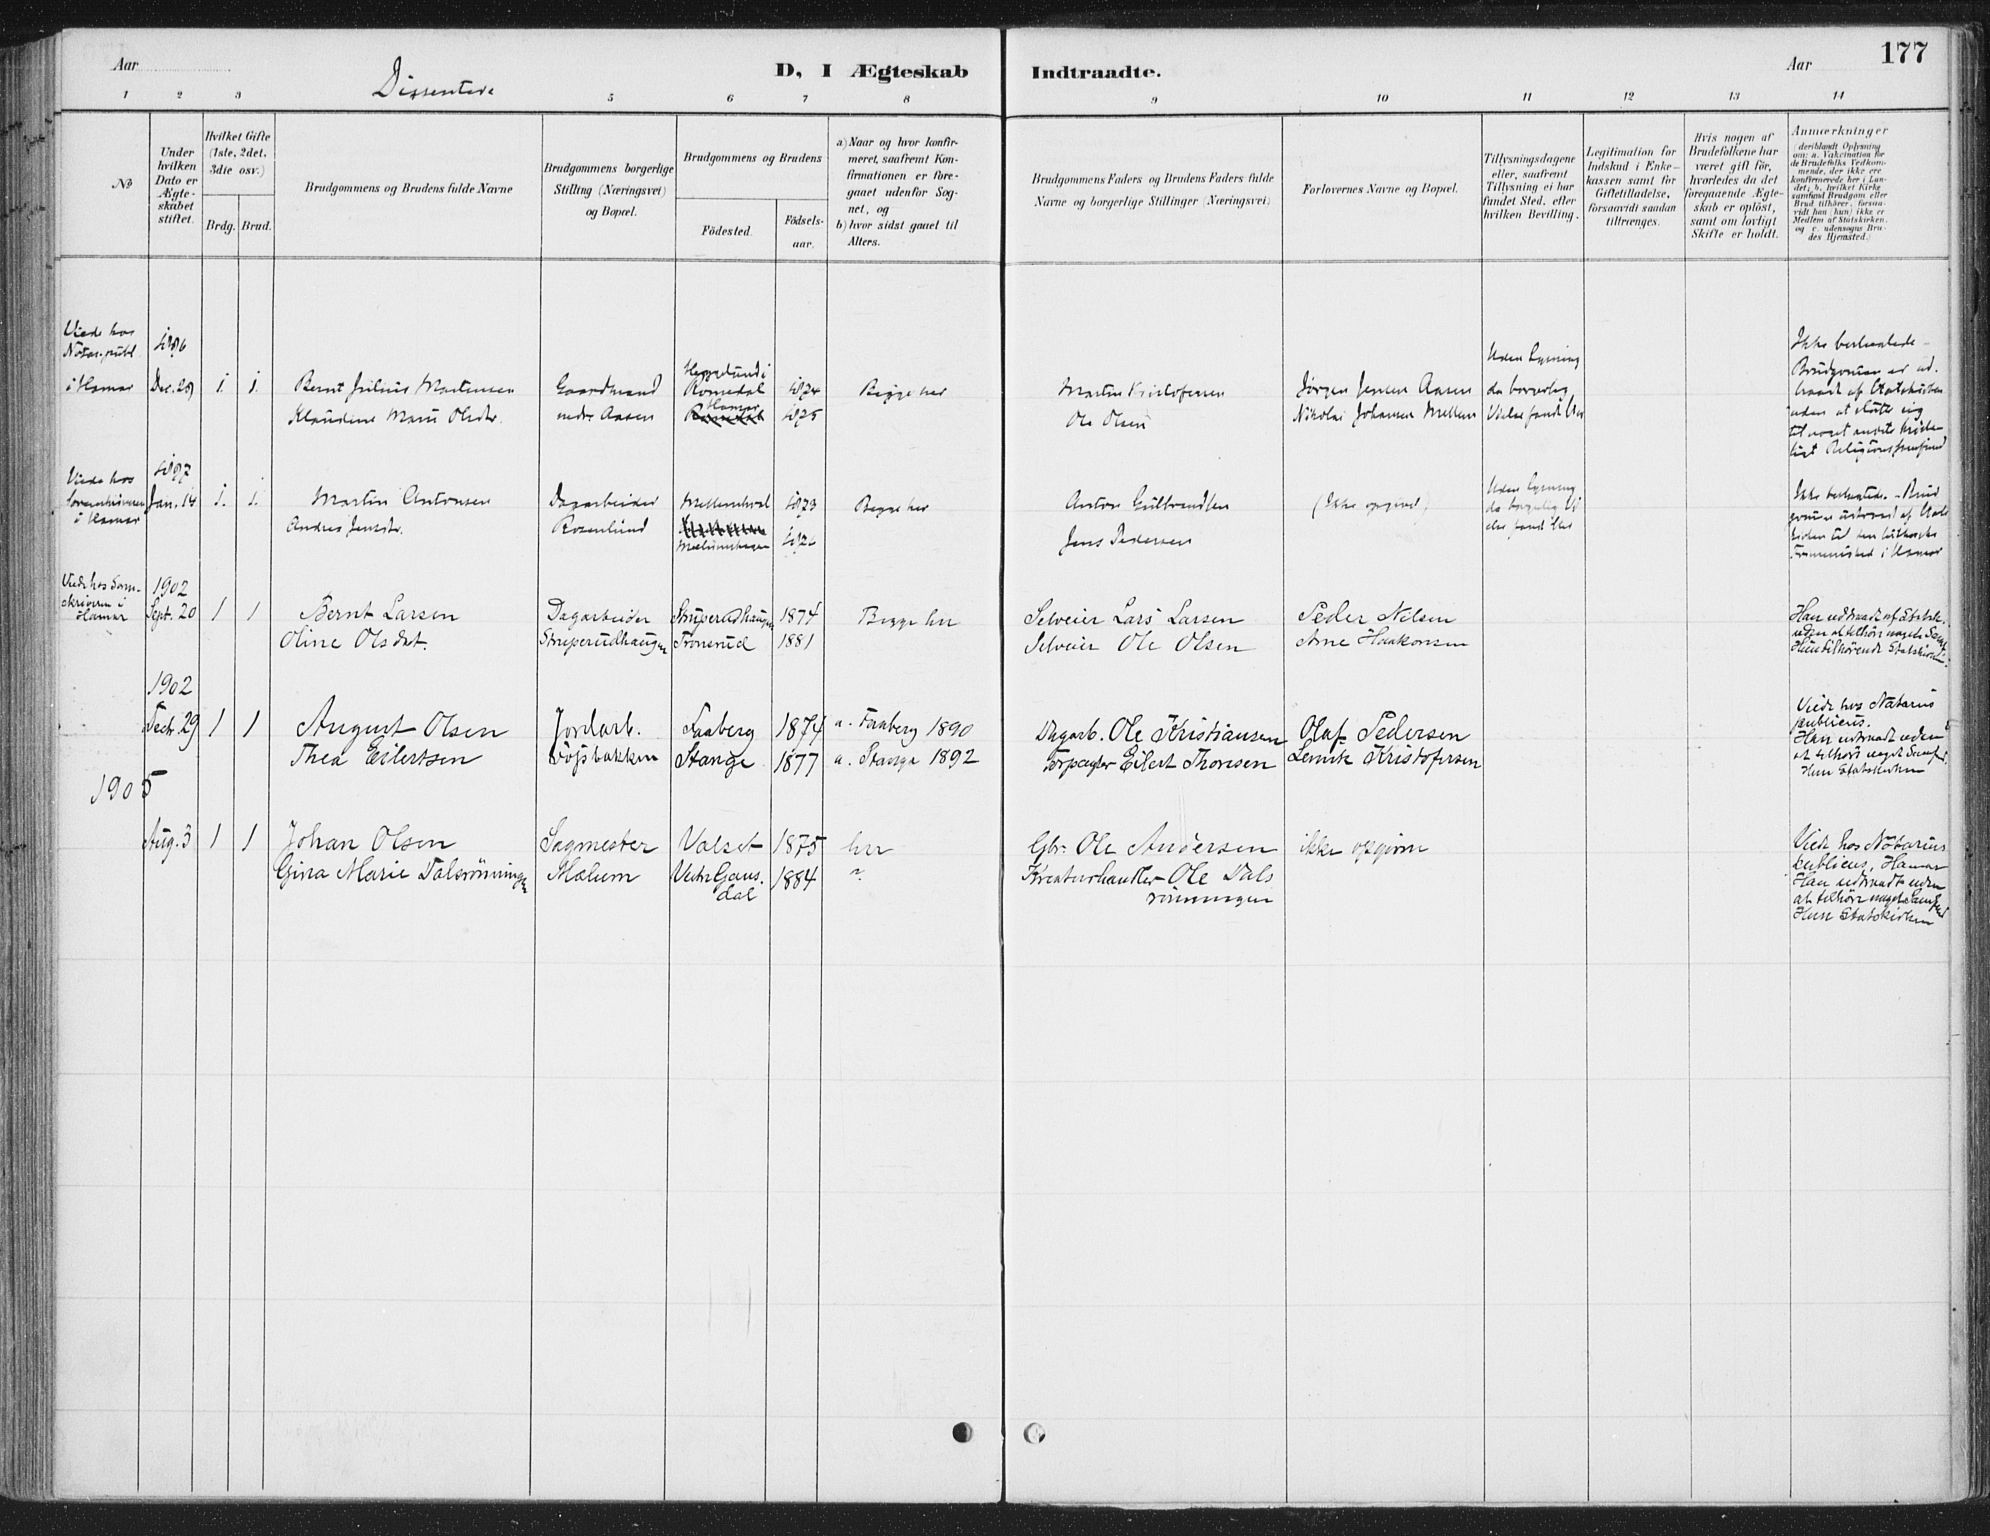 Aar
Dissentere
D, I Ægteskab
Indtraadte.
Aar
177
1 2 3 5 6 7 8 9 10 11 12 13 14
No
Under hvilken Dato er Ægteskabet stiftet.
Hvilket Gifte (1ste, 2det, 3die osv.)
Brdg. Brud.
Brudgommens og Brudens fulde Navne
Brudgommens borgerlige Stilling (Næringsvei) og Bopæl.
Brudgommens og Brudens
Födested.
Födselsaar.
a) Naar og hvor konfirmeret, saafremt Konfirmationen er foregaaet udenfor Sognet, og
b) hvor sidst gaaet til Alters.
Brudgommens Faders og Brudens Faders fulde Navne og borgerlige Stillinger (Næringsvei)
Forlovernes Navne og Bopæl.
Tillysningsdagene eller, saafremt Tillysning ei har fundet Sted, efter hvilken Bevilling.
Legitimation for Indskud i Enkekassen samt for Giftetilladelse, forsaavidt saadan tiltrænges.
Hvis nogen af Brudefolkene har været gift för, hvorledes da det foregaaende Ægteskab er oplöst, samt om lovligt Skifte er holdt.
Anmærkninger
(deriblandt Oplysning om: a. Vakcination for de Brudefolks Vedkommende, der ikke ere konfirmerede her i Landet; b. hvilket Kirkesamfund Brudgom eller Brud tilhører, forsaavidt han (hun) ikke er Medlem af Statskirken, og c. udensogns Brudes Hjemsted.)
Viede hos Notar. publ. i Hamar
1896
Dec. 29 1. 1. Bernt Julius Martensen Gaardmand Romedal 1874 Begge her Martin Kristofersen Jørgen Jensen Aasen
Klaudine Marie Olsdtr. nedr. Aasen Hamar 1875 Ole Olsen Nikolai Johansen
Uden Lysning da borgerlig Vielse fandt Sted
Ikke beslægtede - Brudgommen er udtraadt af Statskirken uden at slutte sig til noget andet kristeligt Religionssamfund
Viede hos Sorenskriveren i Hamar
1897
Jan. 14 1. 1. Martin Antonsen Dagarbeider 1873 Begge her Anton Gulbrandsen (Ikke opgivet)
Andrea Jensdtr. Rosenlund Jens Pedersen
Uden Lysning da borgerlig Vielse fandt Sted
Viede hos Sorenskriveren i Hamar
1902
Sept. 20 1 1 Bernt Larsen Dagarbeider Struperudhaugen 1874 Begge her Selveier Lars Larsen Peder Nilsen
Oline Olsdat. Struperudhaugen Tronerud 1881 Selveier Ole Olsen Arne Haakonsen
Han udtraadt af Statsk. uden at tilhøre noget Samf. Hun tilhørende Statskirken.
1902
Decb. 29 1 1 August Olsen Jordarb. Faaberg 1874 a. Faaberg 1890 Dagarb. Ole Kristiansen Olaf Pedersen
Thea Eilertsen Stange 1877 a. Stange 1892 Eilert Thoresen Kristofersen
Viede hos Notarius publicus. Han udtraadt uden at tilhøre noget Samf. Hun Statskirken
1905
Aug. 3 1 1 Johan Olsen Sagmester Valset 1875 her Gbr. Ole Andersen ikke opgivne
Gina Marie Dalsrønningen Mælum Vestr. Gausdal 1884 " Kreaturhandler Ole Dalsrønningen
Viede hos Notarius publicus, Hamar Han udtraadt uden at tilhøre noget Samfund Hun Statskirken